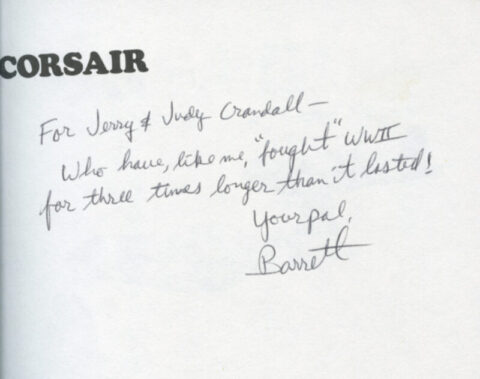 CORSAIR
For Jerry & Judy Crandall—
Who have, like me, "fought" WWII
for three times longer than it lasted!
Your pal,
Barrett